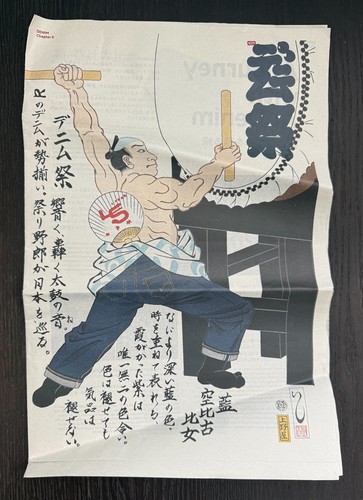 DENIM
デニム祭
デニム祭 響く、轟く太鼓の音。
Rのデニムが勢揃い。祭り野郎が日本を巡る。
藍
空比古
比女
なにより深い藍の色。
時を重ねて表れる
霞がかった紫は
唯一無二の色合い。
色は褪せても
気品は
褪せない。
上野屋